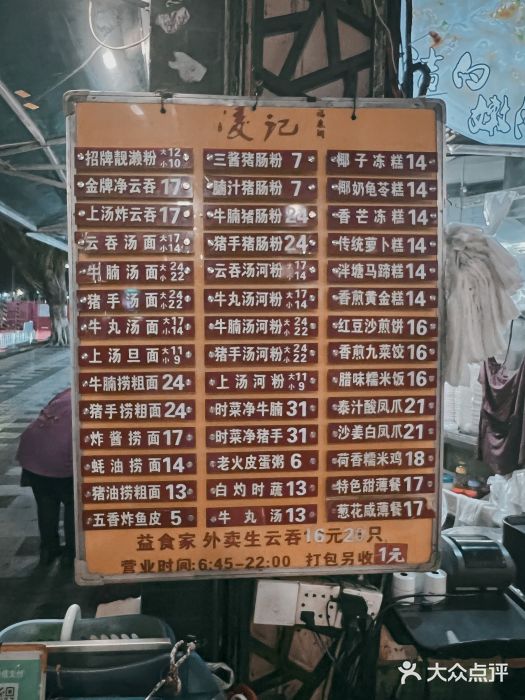 凌记
招牌靓濑粉 大12 小10
金牌净云吞 17
上汤炸云吞 17
云吞汤面 大17 小14
牛腩汤面 大24 小22
猪手汤面 大24 小22
牛丸汤面 大17 小14
上汤旦面 大11 小9
牛腩捞粗面 24
猪手捞粗面 24
炸酱捞面 17
蚝油捞面 14
猪油捞粗面 13
五香炸鱼皮 5
三酱猪肠粉 7
腩汁猪肠粉 7
牛腩猪肠粉 24
猪手猪肠粉 24
云吞汤河粉 大17 小14
牛丸汤河粉 大17 小14
牛腩汤河粉 大24 小22
猪手汤河粉 大24 小22
上汤河粉 大11 小9
时菜净牛腩 31
时菜净猪手 31
老火皮蛋粥 6
白灼时蔬 13
牛丸汤 13
椰子冻糕 14
椰奶龟苓糕 14
香芒冻糕 14
传统萝卜糕 14
泮塘马蹄糕 14
香煎黄金糕 14
红豆沙煎饼 16
香煎九菜饺 16
腊味糯米饭 16
泰汁酸凤爪 21
沙姜白凤爪 21
荷香糯米鸡 18
特色甜薄餐 17
葱花咸薄餐 17
益食家 外卖生云吞16元20只
营业时间:6:45-22:00 打包另收1元
大众点评